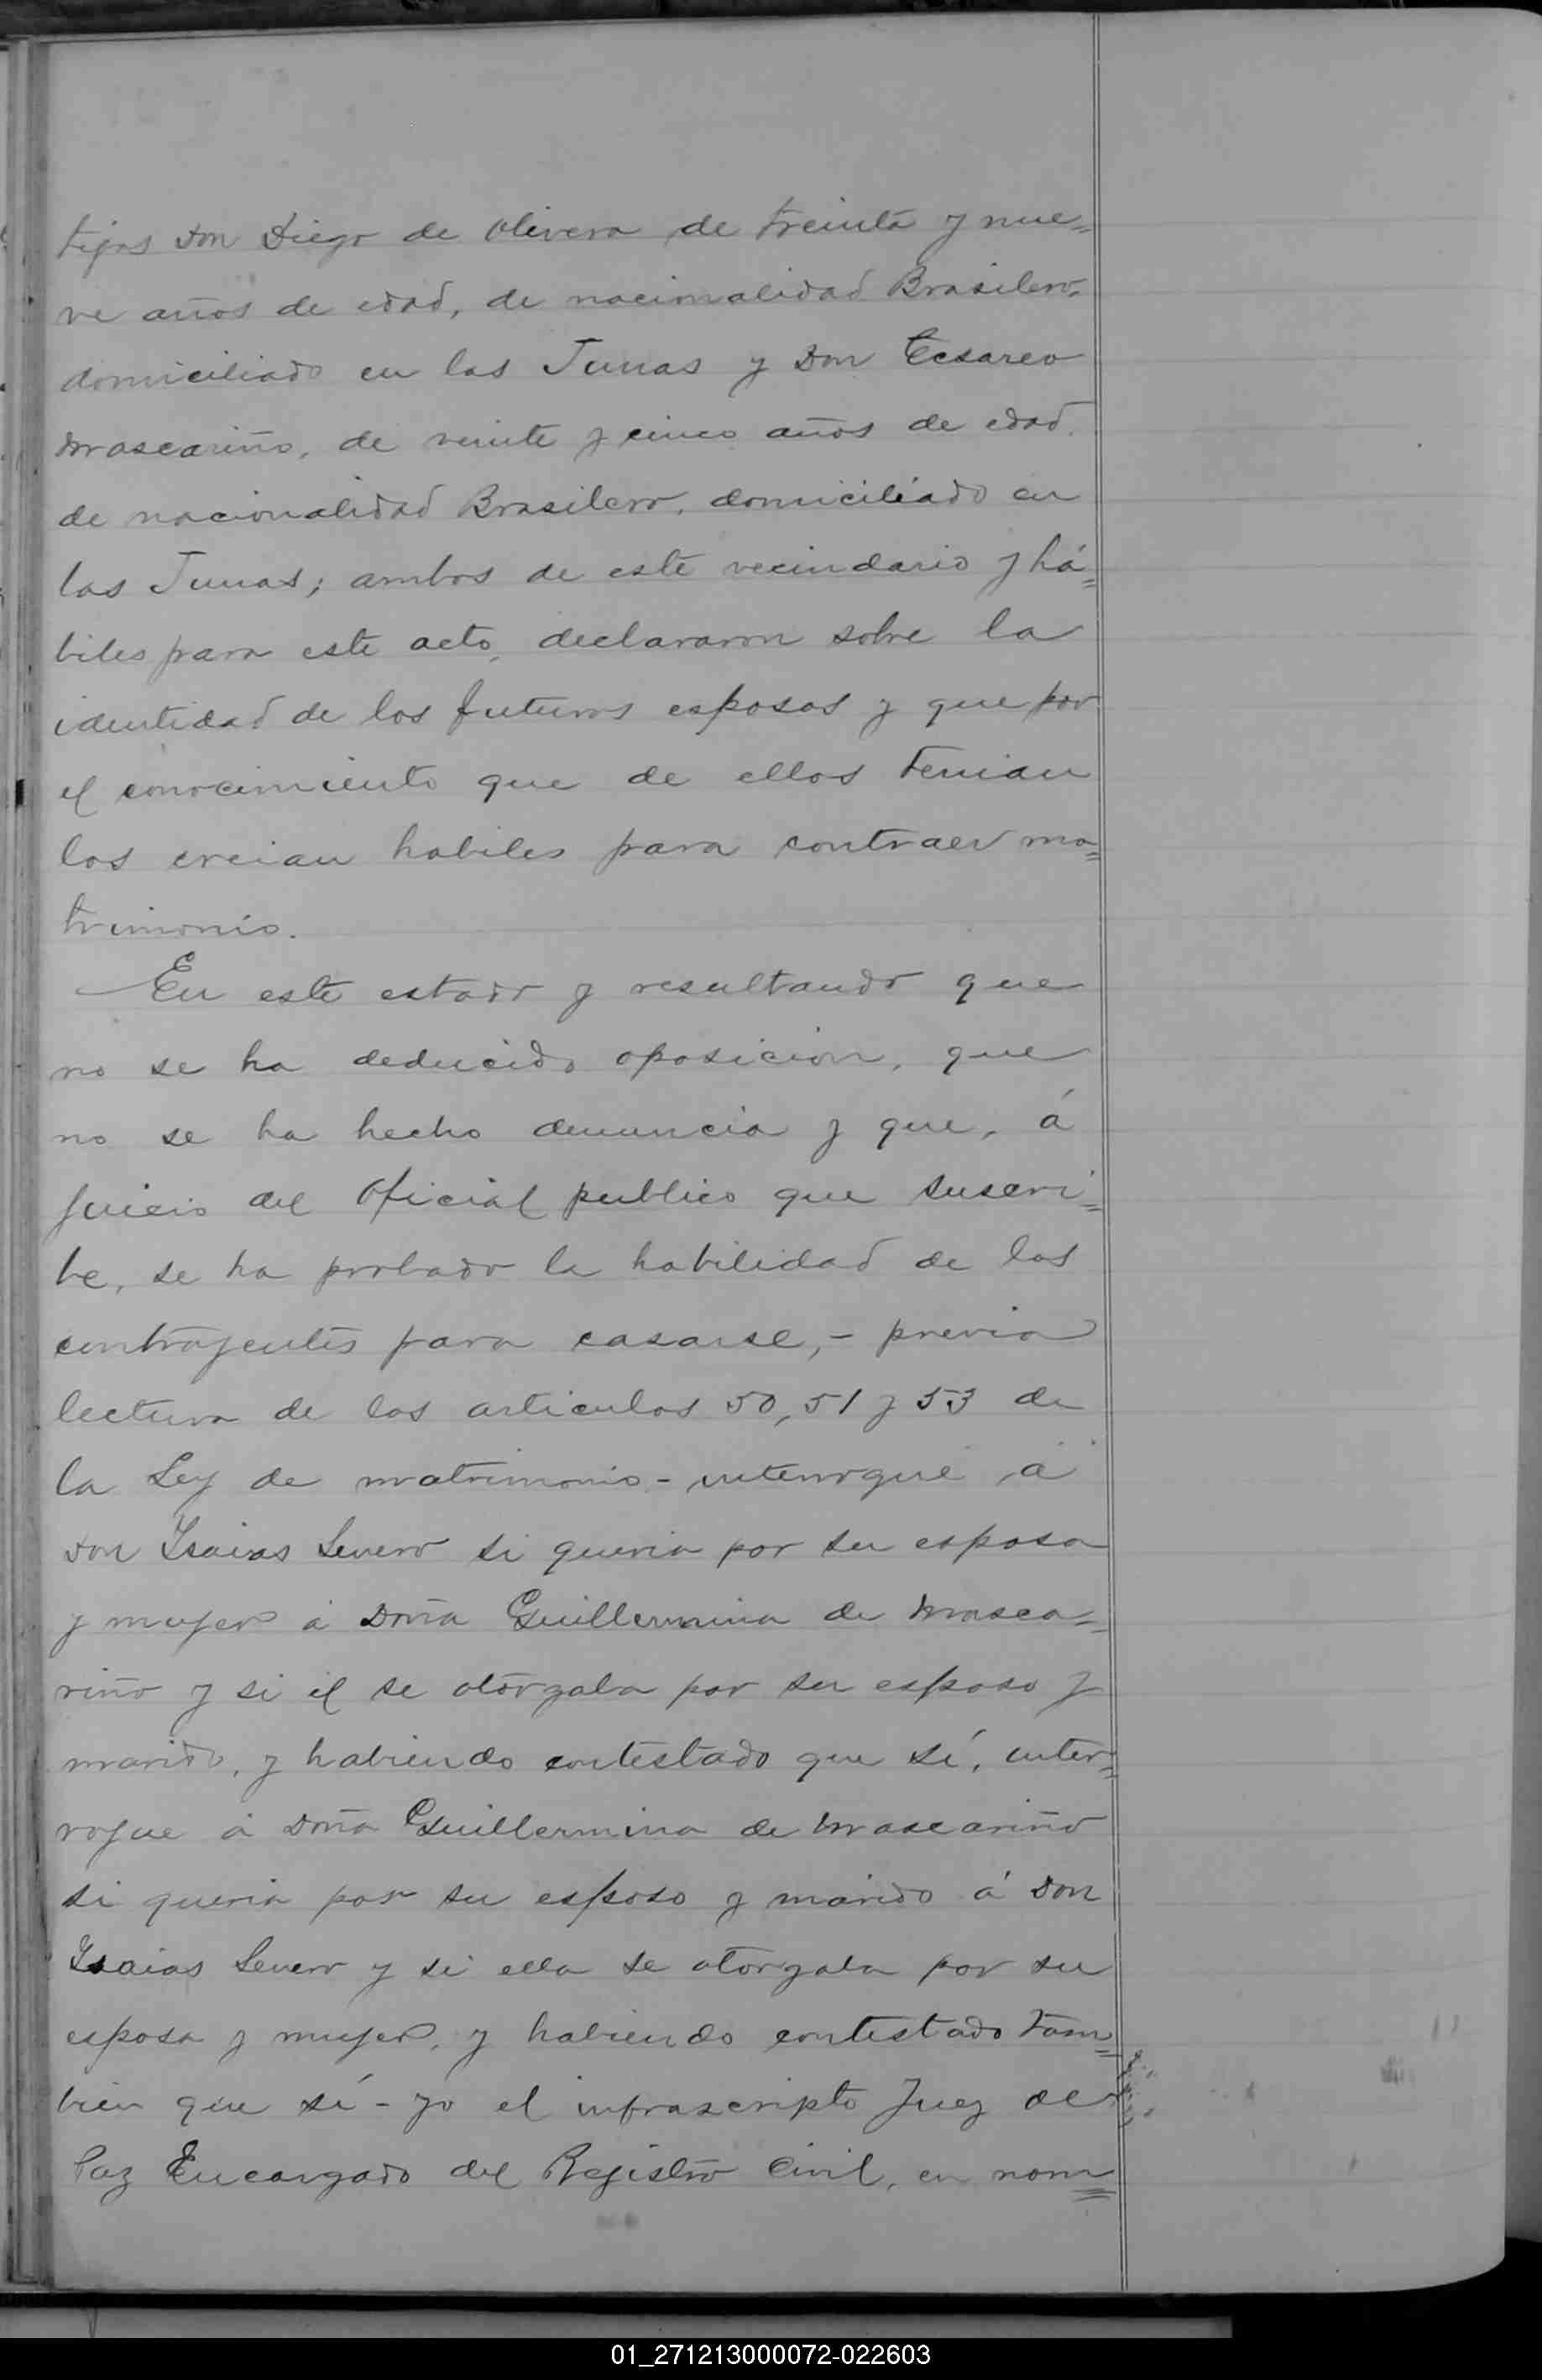 tigos Don Diego de Olivera de treinta y nue=
ve años de edad, de nacionalidad Brasilero,
domiciliado en las Tunas y Don Cesareo
Mascariño, de veinte y cinco años de edad,
de nacionalidad Brasilero, domiciliado en
las Tunas; ambos de este vecindario y há=
biles para este acto, declararon sobre la
identidad de los futuros esposos y que por
el conocimiento que de ellos tenian
los creian habiles para contraer ma=
trimonio.
En este estado y resultando que
no se ha deducido oposicion, que
no se ha hecho denuncia y que, á
juicio del Oficial publico que suscri=
be, se ha probado la habilidad de los
contrayentes para casarse,- previa
lectura de los articulos 50, 51 y 53 de
la Ley de matrimonio - interrogué á
Don Isaias Severo si queria por su esposa
y mujer á Doña Guillermina de Masca=
riño y si él se otorgaba por su esposo y
marido, y habiendo contestado que sí, inter=
rogue á Doña Guillermina de Mascariño
si queria por su esposo y marido á Don
Isaias Severo y si ella se otorgaba por su
esposa y mujer, y habiendo contestado tam=
bien que sí - yo el infrascripto Juez de
Paz Encargado del Registro Civil, en nom=
01_271213000072-022603